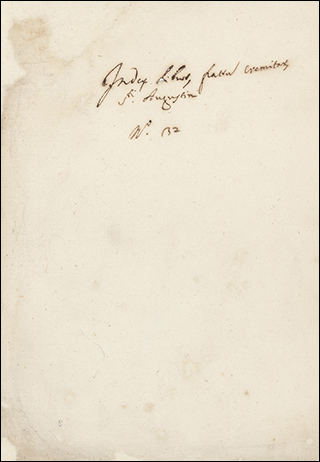 Index libror, fratrū eremitarū
sti Augustin
No. 132